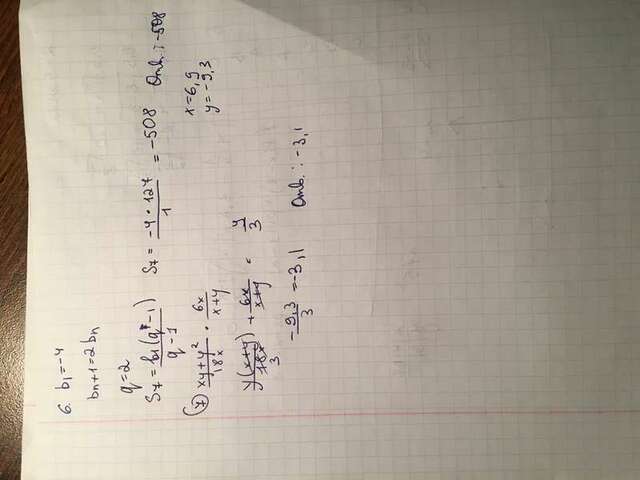 6. b₁=-4
bₙ+1=2bₙ
q=2
S₇ = b₁(q⁷-1) / q-1   S₇ = -4 · 127 / 1 = -508   Отв.: -508
7) xy+y² / 18x · 6x / x+y   x=6,9
y=-9,3
y(x+y) / 18x 3 + 6x / x+y = y / 3
-9,3 / 3 = -3,1   Отв.: -3,1